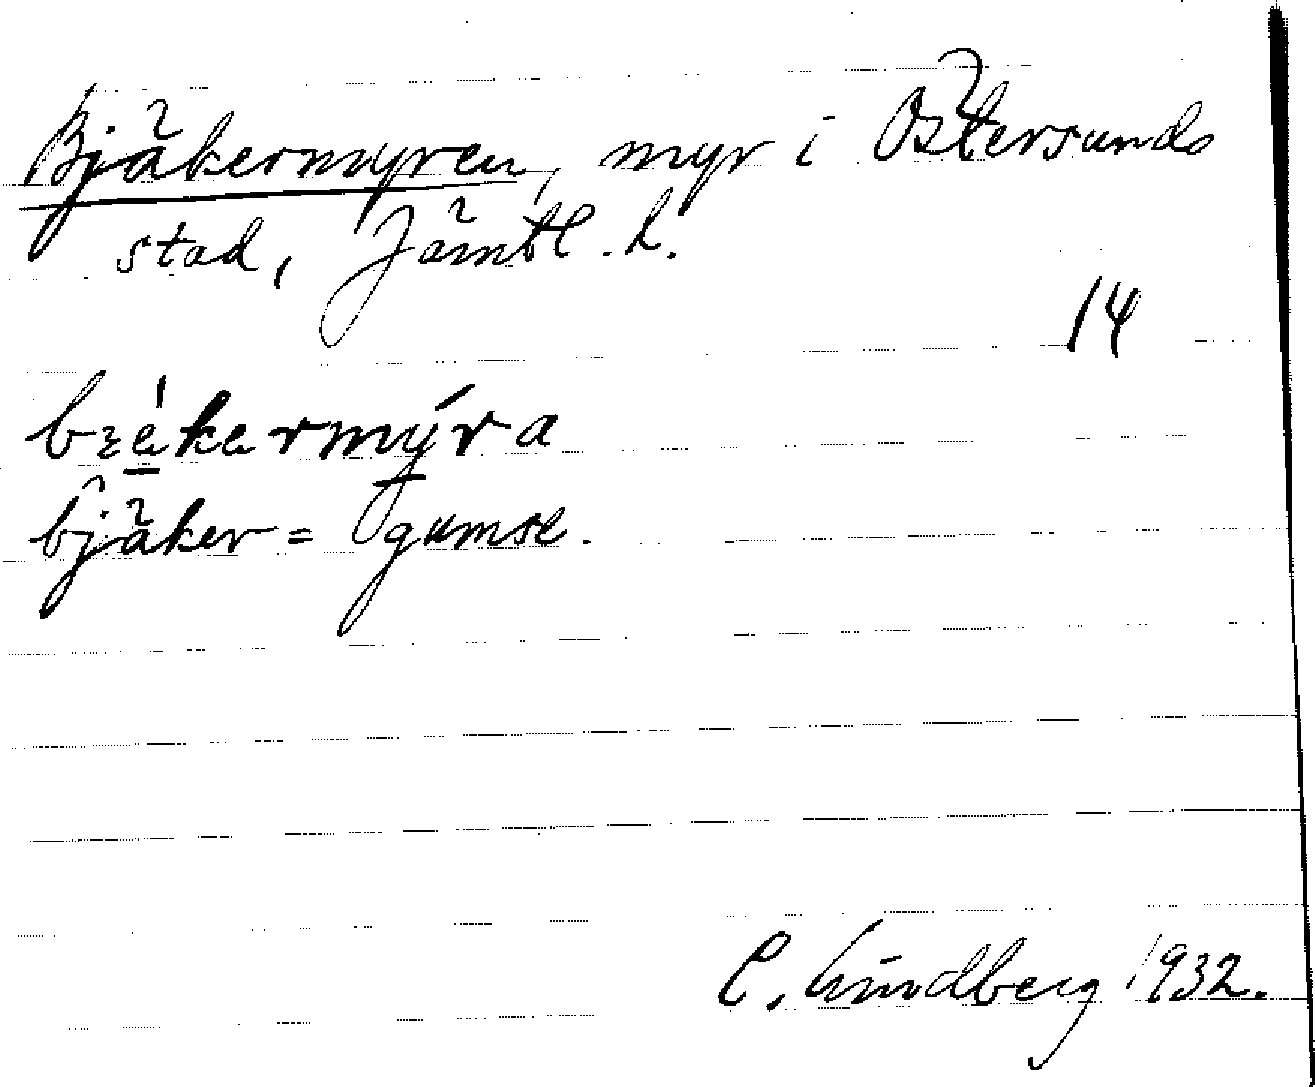 Bjäkermyren, myr i Östersunds
stad, Jämtl. l.
14
bɪèkermýra
bjäker = gumse.
C. Lindberg 1932.